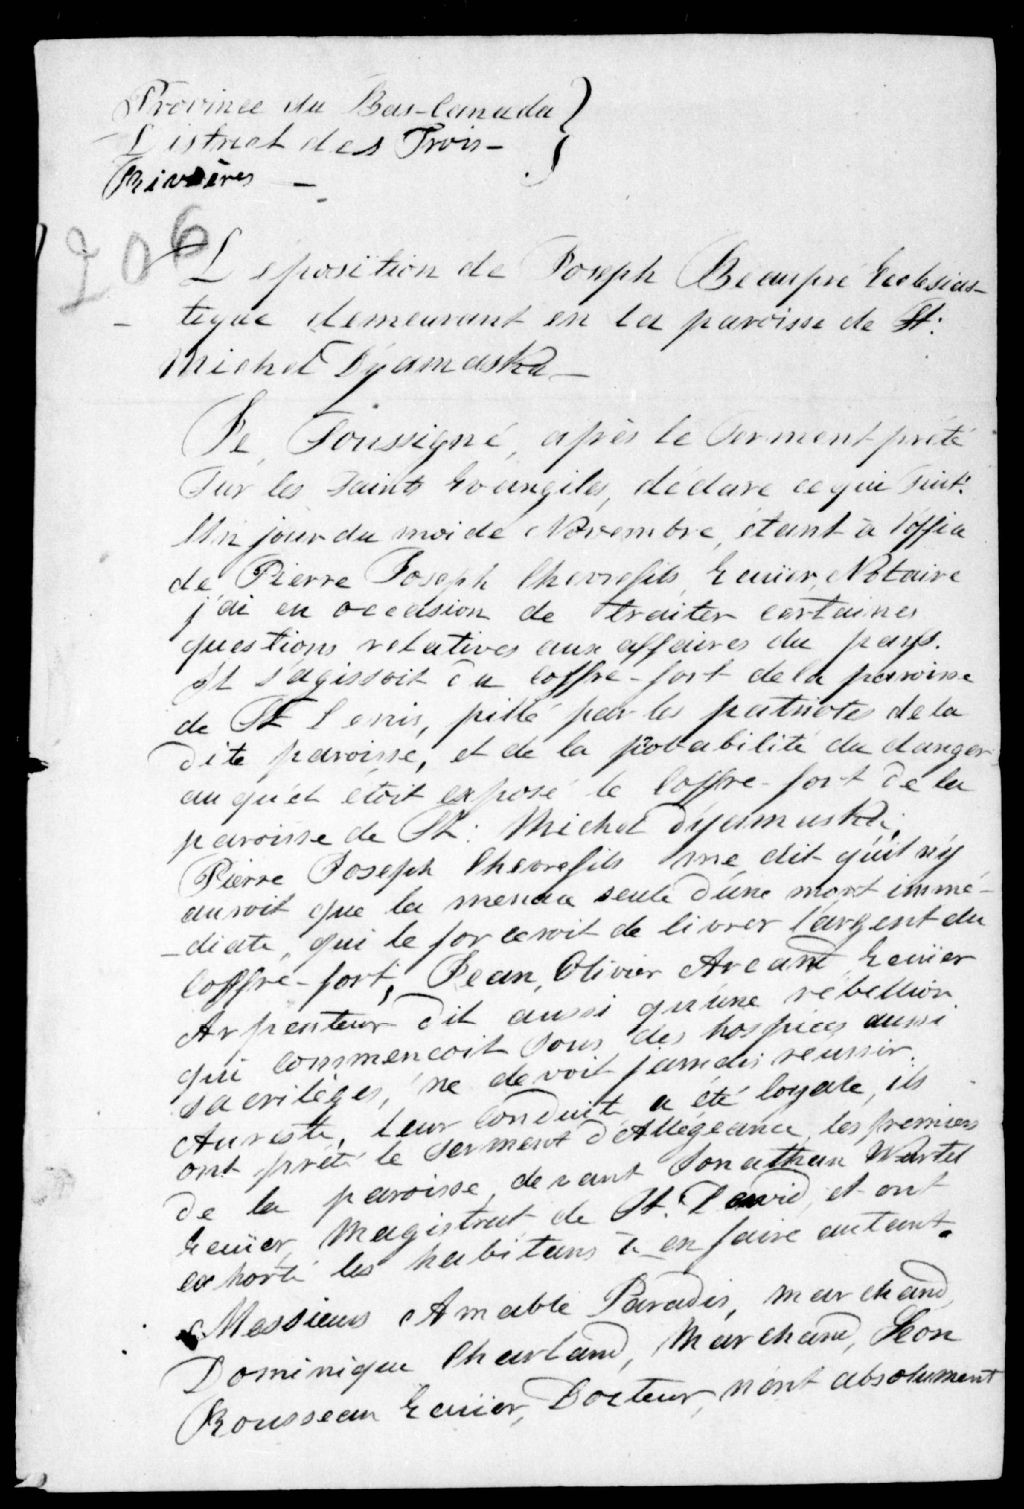 Province du Bas-Canada }
District des Trois-
Rivières —
206
Déposition de Joseph Beaupré Ecclésias-
- tique demeurant en la paroisse de St:
Michel Dyamaska —
Je, Soussigné, après le serment prêté
Sur les Saints Evangiles, déclare ce qui suit:
Un jour du moi de Novembre, étant à l'office
de Pierre Joseph Chevrefils, Ecuïer, Notaire
j'ai eu occasion de traiter certaines
questions relatives aux affaires du pays.
Il s'agissoit du Coffre-fort de la paroisse
de St Denis, pillé par les patriotes de la
dite paroisse, et de la probabilité du danger
auquel étoit exposé le Coffre-fort de la
paroisse de St: Michel Dyamaska;
Pierre Joseph Chevrefils me dit qu'il n'y
auroit que la menace seule d'une mort immé-
- diate, qui le forceroit de livrer l'argent du
Coffre-fort; Jean, Olivier Arcand Ecuïer
Arpenteur dit aussi qu'une rébellion
qui commençoit sous des hospices aussi
sacrilèges, ne devoit jamais réussir.
Aureste, leur conduite a été loyale, ils
ont prêté le serment d'Allégeance, les premiers
de la paroisse, devant Jonathan Wurtel
Ecuïer, Magistrat de St. David, et ont
exhorté les habitans à en faire autant.
Messieurs Amable Paradis, marchand,
Dominique Charland, Marchand, Léon
Rousseau Ecuïer, Docteur, n'ont absolument